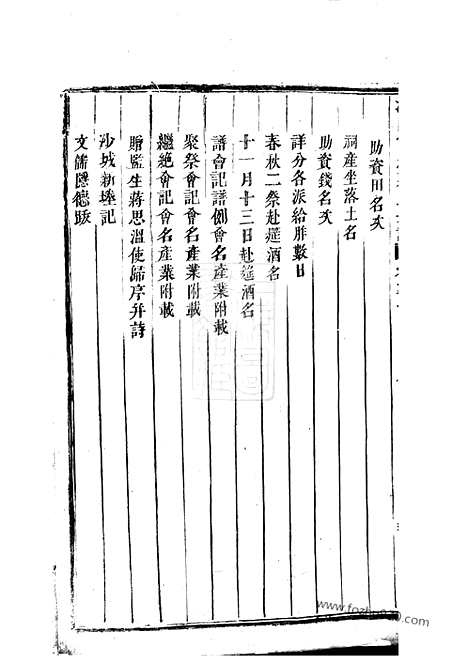 助資田名次
祠產坐落土名
助資錢名次
詳分各派給胙數目
春秋二祭赴筵酒名
十一月十三日赴筵酒名
譜會記譜例會名產業附載
聚祭會記會名產業附載
繼絶會記會名產業附載
贈監生蔣思溫使歸序并詩
沙城新壆記
文儒隱德跋
www.fozhu920.com